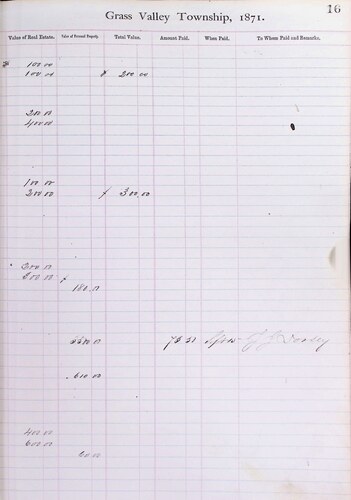 16
Grass Valley Township, 1871.
Value of Real Estate. Value of Personal Property. Total Value. Amount Paid. When Paid. To Whom Paid and Remarks.
100 00
100 00 200 00
200 00
400 00
100 00
200 00 300 00
200 00
300 00
180 0
600 00
400 00
600 00
60 00